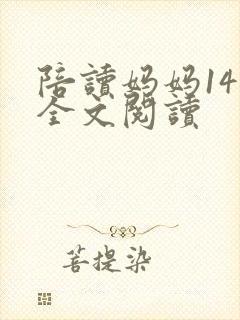 陪讀妈妈14
全文閱讀
菩提染